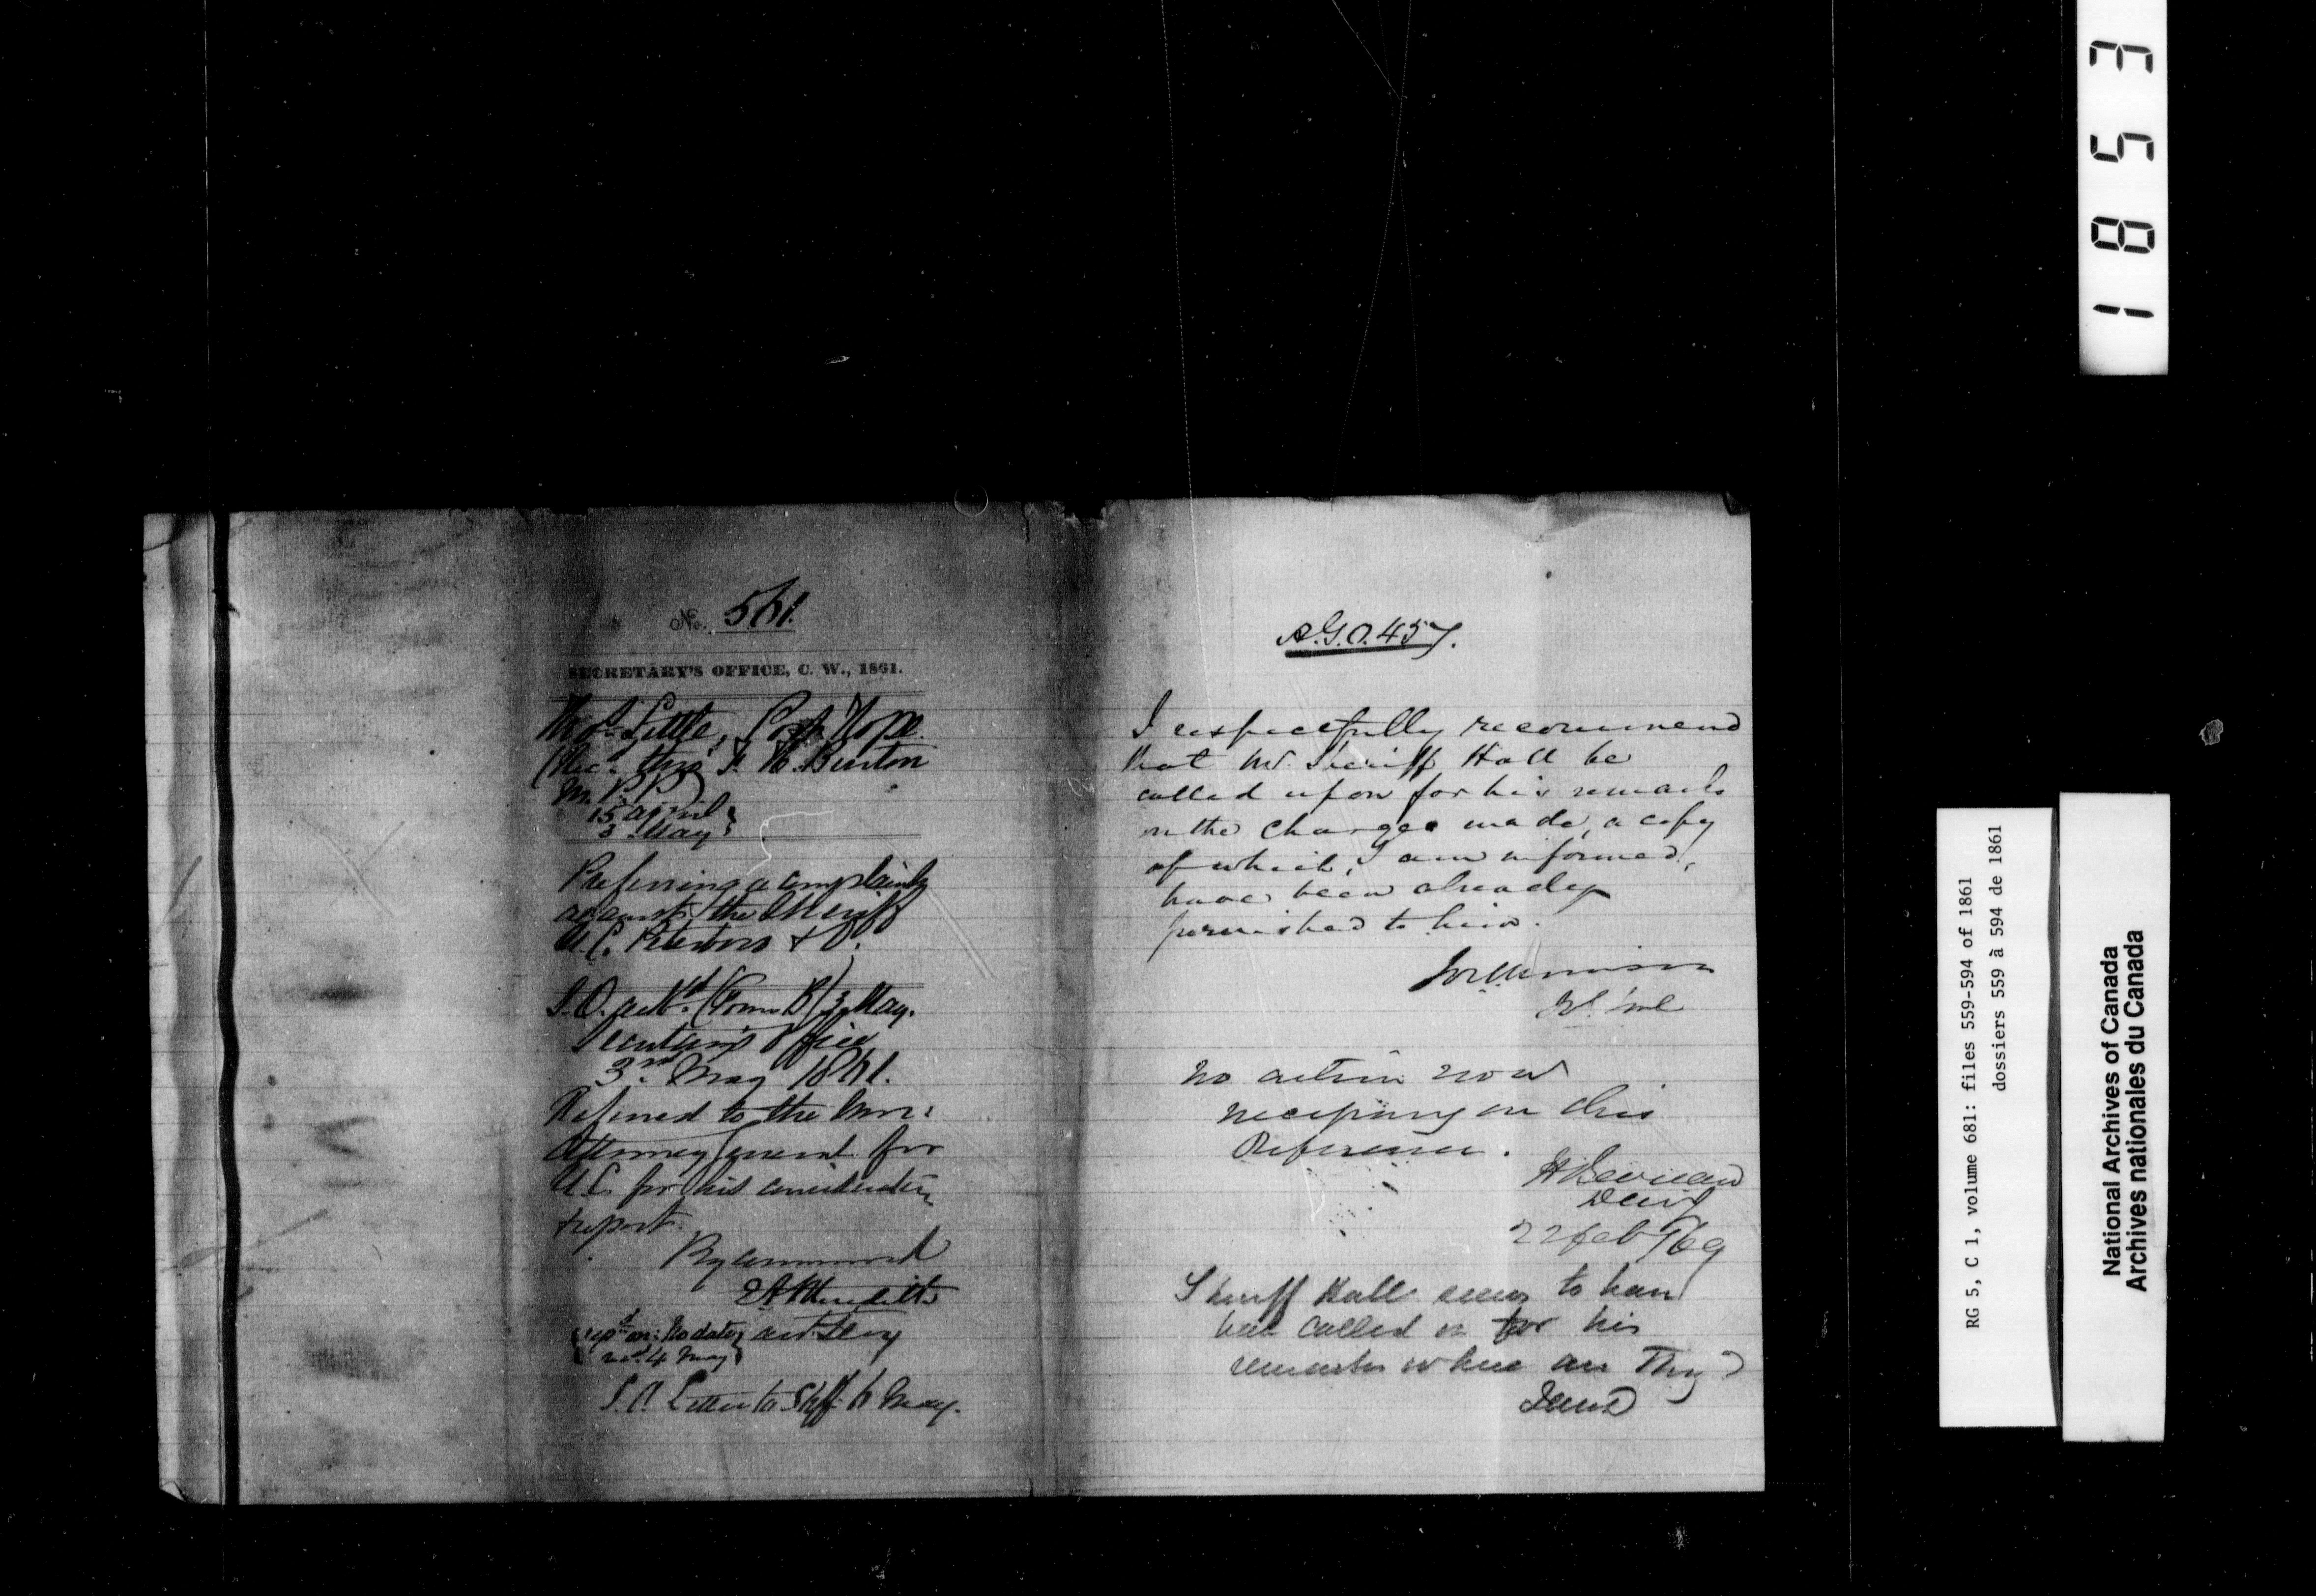 No. 561.
SECRETARY'S OFFICE, C. W., 1861.
Thos. Little, Port Hope.
(Rec.d thro' F. H. Burton
M.P.P.)
15 April
3 May
Preferring a complaint
against the Sheriff
U.C. Peterboro & V.
S.O. ackd. (Form B) 3 May.
Secretary's Office
3rd. May 1861.
Referred to the Hon:
Attorney General for
U.C. for his consideration
& report.
By command
E A Meredith
repd. on: No date
recd. 4 May
S.O. Letter to Shff. 6 May.
A.G.O. 457.
I respectfully recommend
that Mr. Sheriff Hall be
called upon for his remarks
on the charges made, a copy
of which, I am informed,
have been already
furnished to him.
No action now
necessary on this
Reference.
H Bernard
22 feb /69
Sheriff Hall seems to have
been called on for his
remarks where are they?
1853
RG 5, C 1, volume 681: files 559-594 of 1861
dossiers 559 à 594 de 1861
National Archives of Canada
Archives nationales du Canada